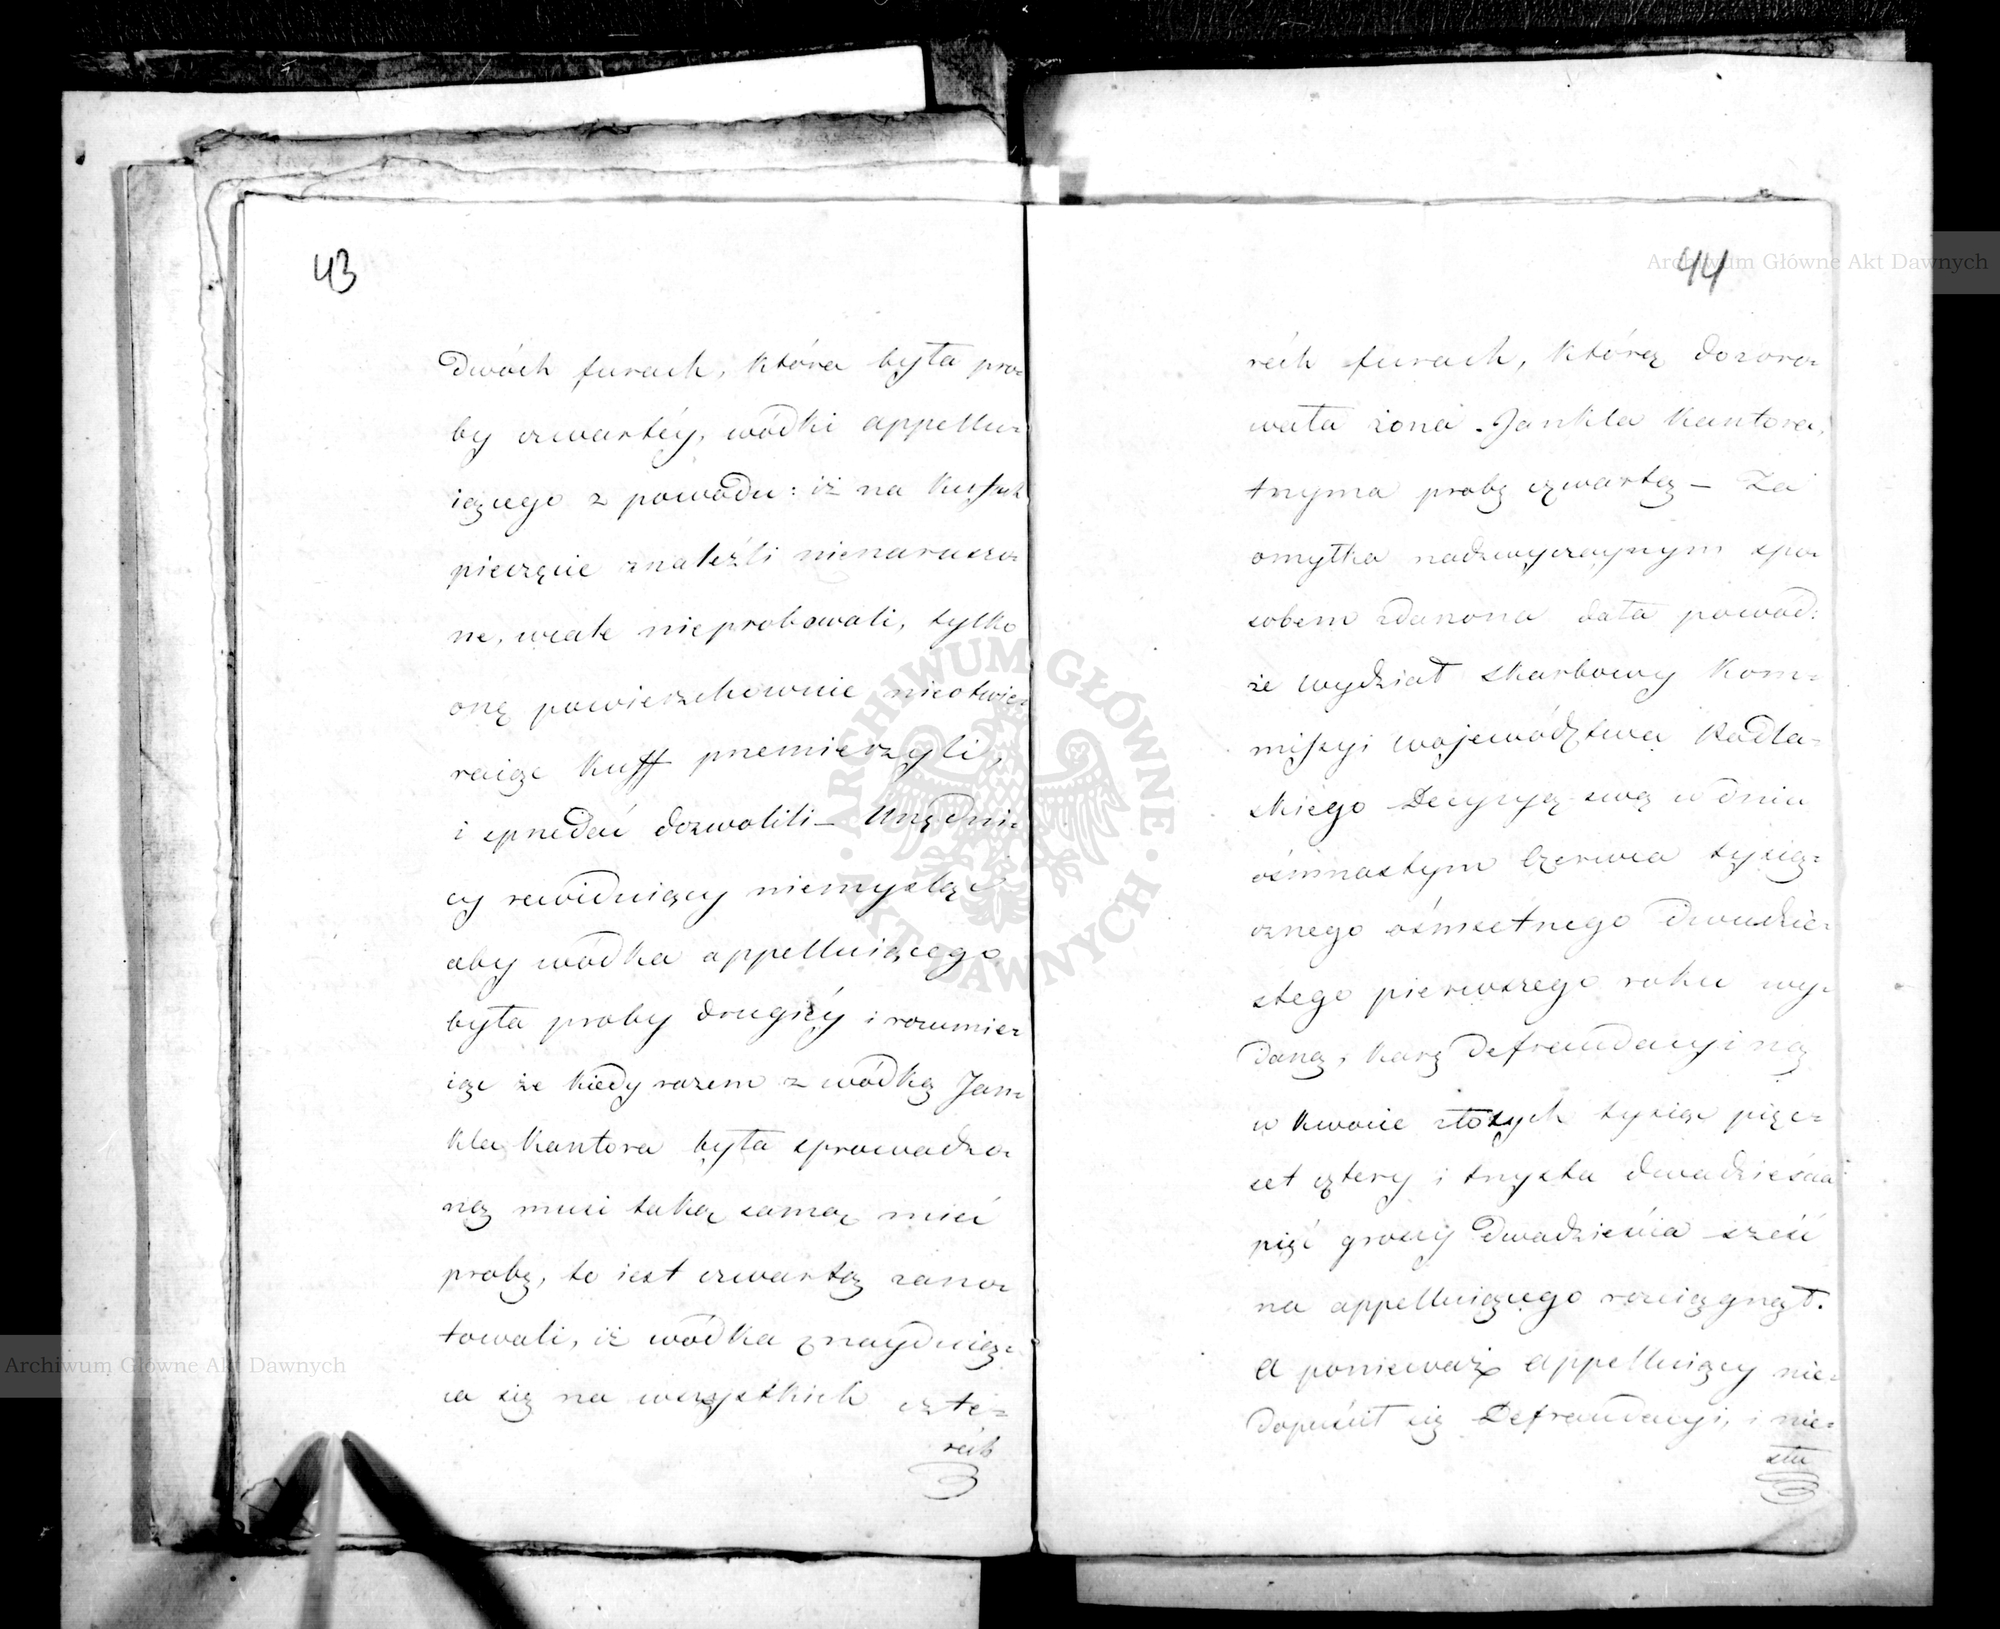 43
dwóch furach, która była pro=
by czwartéy, wódki appellu=
iącego z powodu: iż na kufach
pieczęcie znaleźli nienaruszo=
ne, wcale nieprobowali, tylko
onę powierzchownie nieotwie=
raiąc kuff przemierzyli,
i sprzedać dozwolili – Urzędni=
cy rewiduiący niemyśląc
aby wódka appelluiącego
była proby drugiéy i rozumie=
iąc że kiedy razem z wódką Jan=
kla Kantora była sprowadzo=
ną musi taką samą mieć
probę, to iest czwartą zano=
towali, iż wódka znayduiąc=
a się na wszystkich czte=
rech
44
rech furach, którą dozoro=
wała żona Jankla Kantora,
trzyma probę czwartą – Ta
omyłka nadzwyczaynym spo=
sobem zdarzona dała powód:
że Wydział Skarbowy Kom=
missyi Województwa Podla=
skiego Decyzyą swą w dniu
ośmnastym Czerwca tysiąc=
znego ośmsetnego dwudzie=
stego pierwszego roku wy=
daną, karę Defraudacyiną
w kwocie złotych tysiąc pięc=
set cztery i trzysta dwadzieścia
pięć groszy dwadzieścia sześć
na appelluiącego rozciągnął.
A ponieważ appelluiący nie=
dopuścił się Defraudacyi, i nie=
stu
Archiwum Główne Akt Dawnych
Archiwum Główne Akt Dawnych
ARCHIWUM GŁÓWNE · AKT DAWNYCH ·